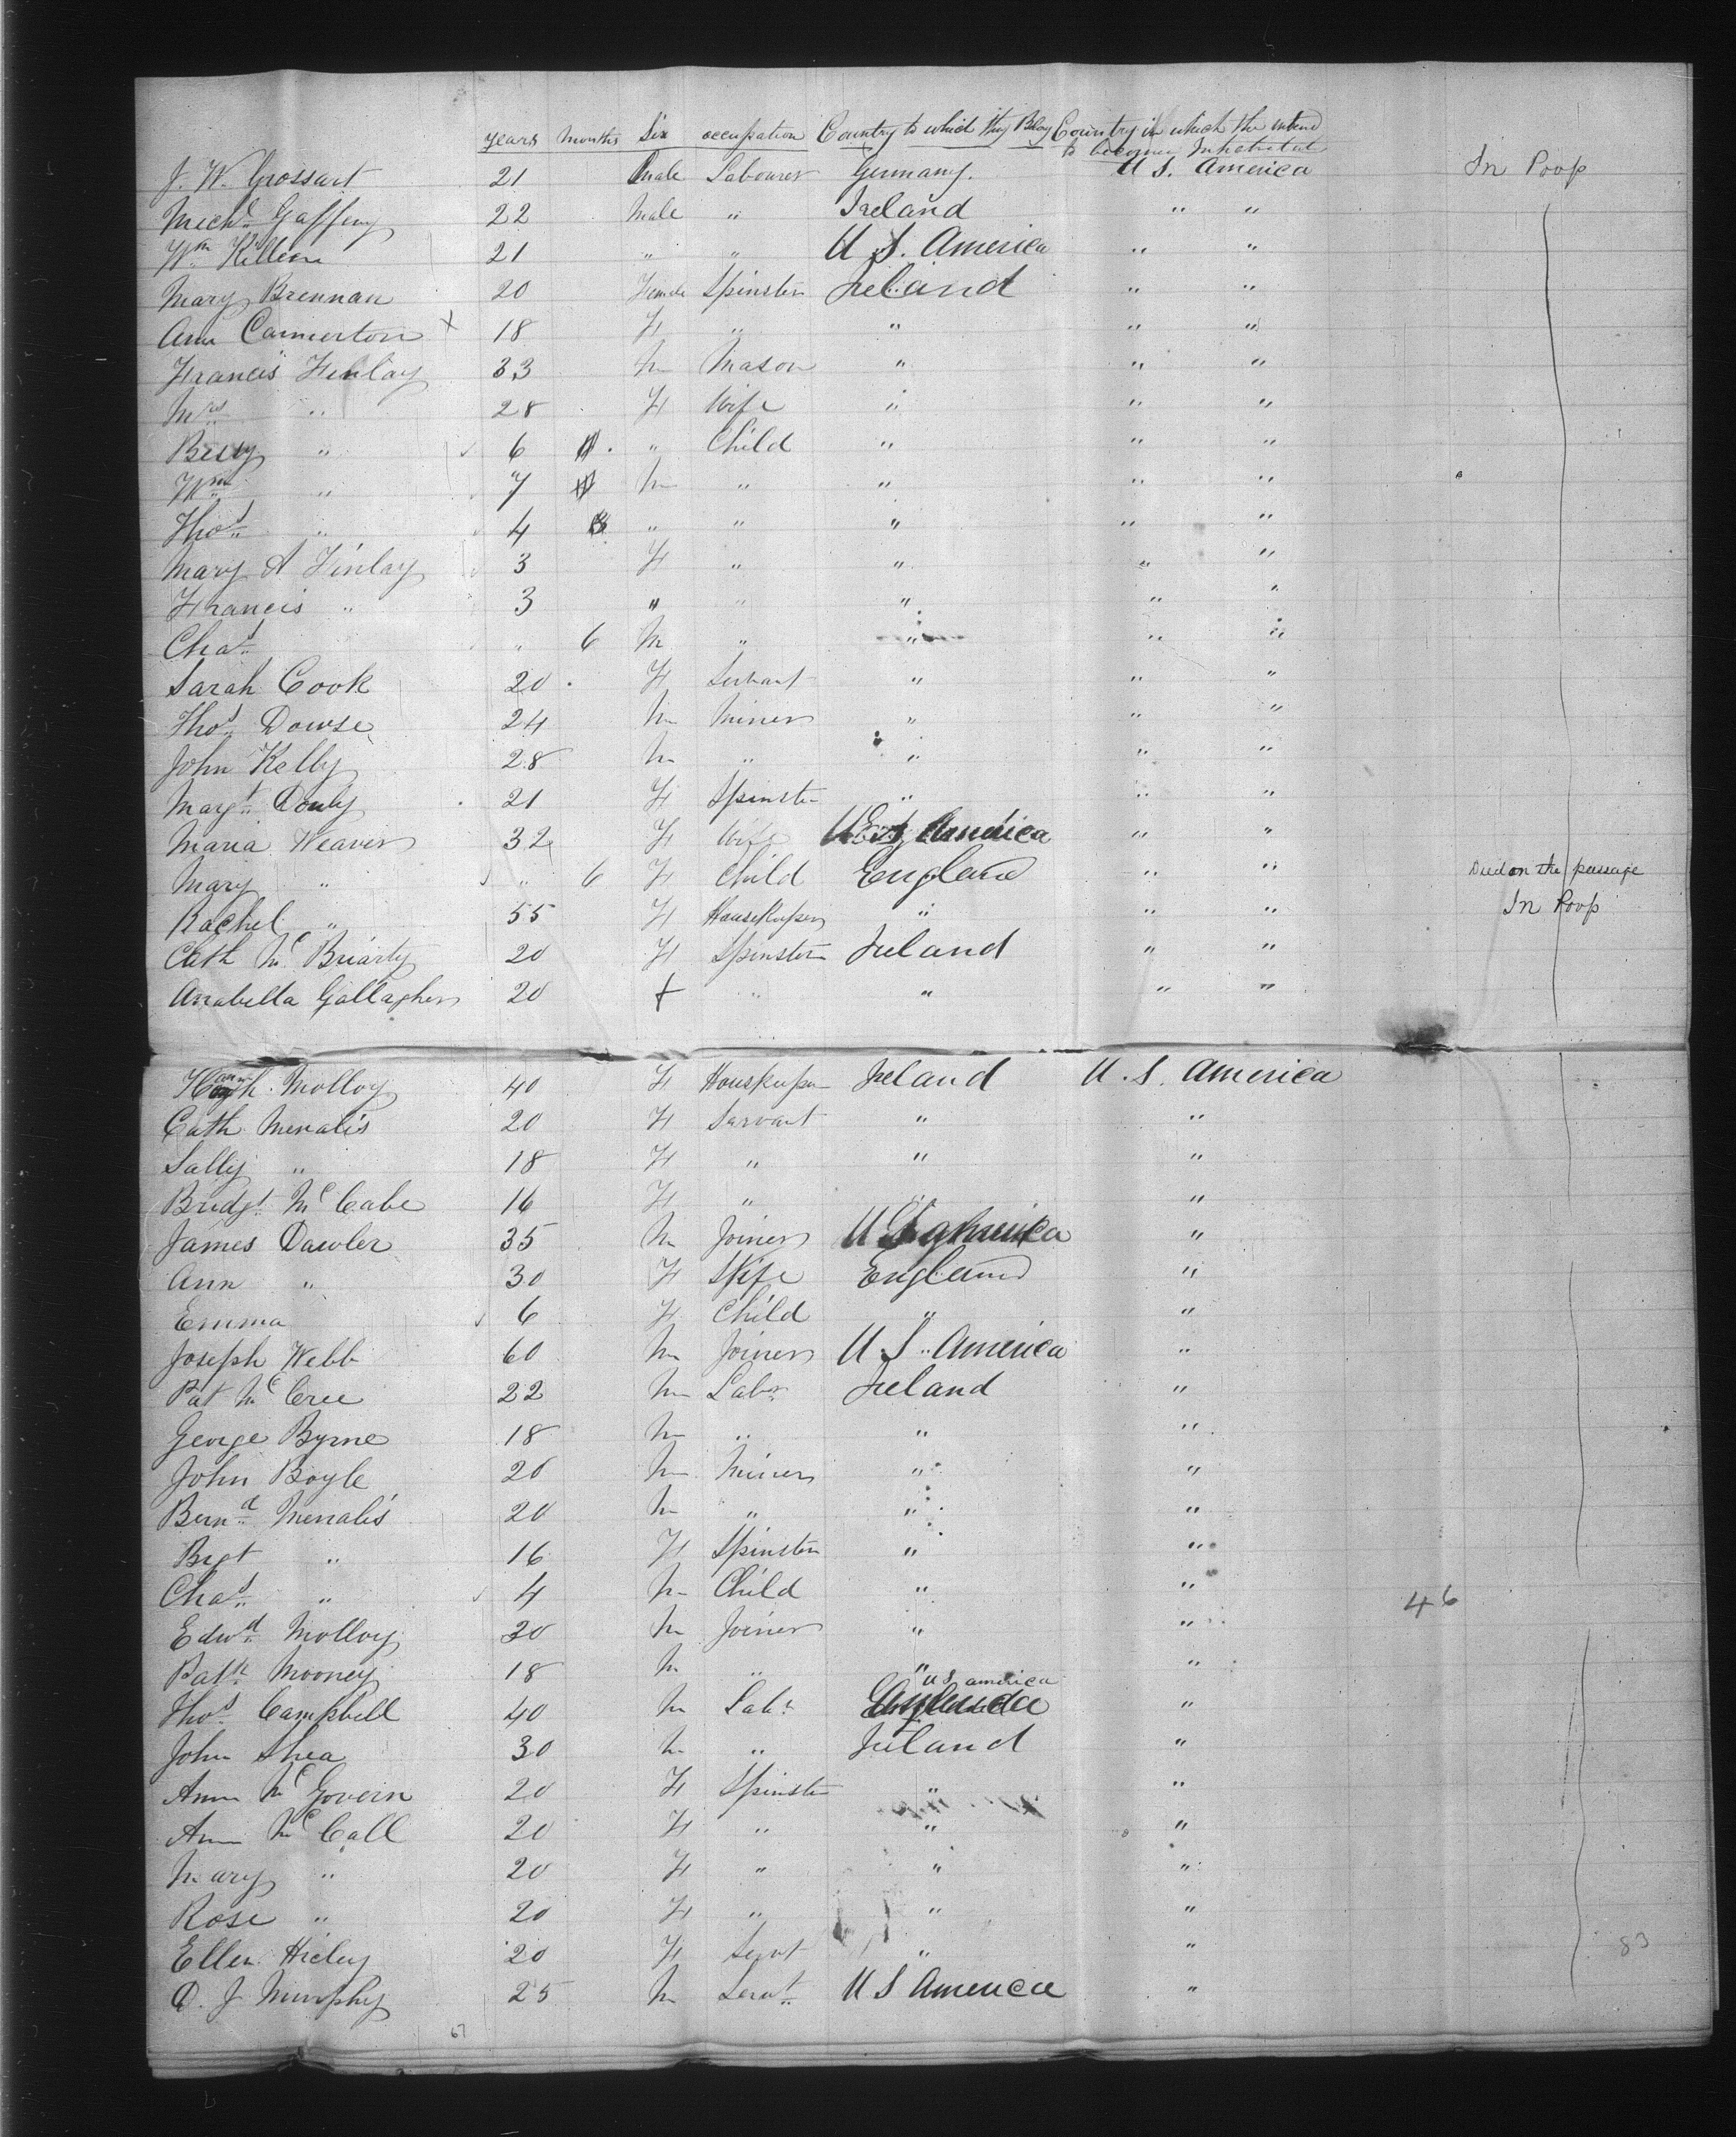 years months Sex occupation Country to which they Blong Country in which the intend
to become Inhabitat
J. W. Grossart 21 Male Labourer Germany. U S. America In Poop
Michl Gaffeny 22 Male " Ireland " "
Wm Killion 21 " " U. S. America " "
Mary Brennan 20 Female Spinster Ireland " "
Ann Cannerton x 18 F " " " "
Francis Finlay 33 M Mason " " "
Mrs " 28 F Wife " " "
Betsy " 6 " Child " " "
Wm " 7 M " " " "
Thos " 4 " " " " "
Mary A Finlay 3 F " " " "
Francis " 3 " " " " "
Chas " 6 M " " " "
Sarah Cook 20 F Servant " " "
Thos Dowse 24 M Miner " " "
John Kelly 28 M " " " "
Margt Donly 21 F Spinster " " "
Maria Weaver 32 F Wife U S America " "
Mary " " 6 F Child England " " Died on the passage
Rachel " 55 F Housekeeper " " " In Poop
Cath Mc Briarty 20 F Spinster Ireland " "
Anabella Gallagher 20 f " " " "
Hannh Molloy 40 F Houskeeper Ireland U. S. America
Cath Menalis 20 F Sarvant " "
Sally " 18 F " " "
Bridgt Mc Cabe 16 F " " "
James Dawler 35 M Joiner U S America "
Ann " 30 F Wife England "
Emma 6 F Child " "
Joseph Webb 60 M Joiner U S. America "
Pat Mc Cree 22 M Labr Ireland "
George Byrne 18 M " " "
John Boyle 20 M Miner " "
Bernd Menalis 20 M " " "
Brgt " 16 F Spinster " "
Chas " 4 M Child " " 46
Edwd Molloy 30 M Joiner " "
Patk Mooney 18 M " " "
Thos Campbell 40 M Labr U S america "
John Shea 30 M " Ireland "
Ann Mc Govern 20 F Spinster " "
Ann Mc Call 20 F " " "
Mary " 20 F " " "
Rose " 20 F " " "
Ellen Hicley 20 F Servt " " 83
D. J Murphy 25 M Servt U S America "
67